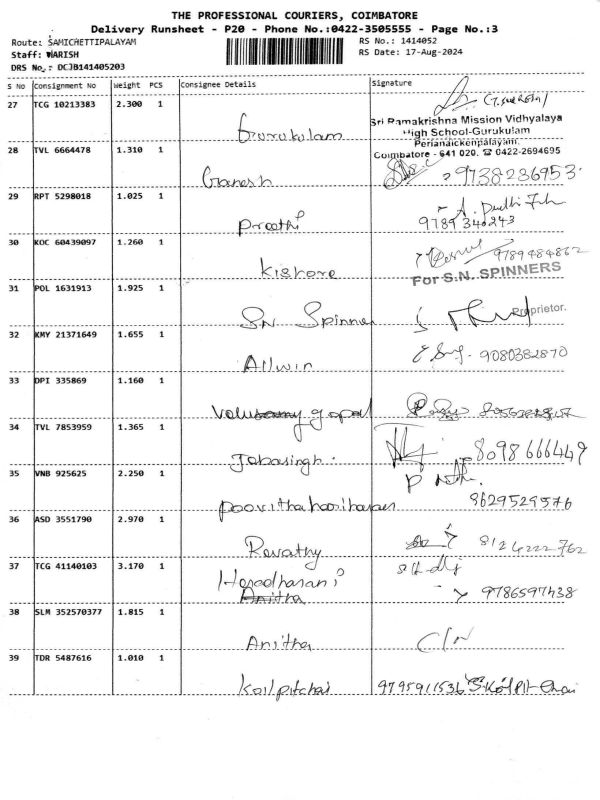 THE PROFESSIONAL COURIERS, COIMBATORE
Delivery Runsheet - P20 - Phone No.:0422-3505555 - Page No.:3
Route: SAMICHETTIPALAYAM
RS No.: 1414052
Staff: WARISH
RS Date: 17-Aug-2024
DRS No.: DCJB141405203
S No Consignment No Weight PCS Consignee Details Signature
27 TCG 10213383 2.300 1
Gurukulam
Sri Ramakrishna Mission Vidhyalaya
High School-Gurukulam
Perianaickenpalayam,
Coimbatore - 641 020. ☎ 0422-2694695
28 TVL 6664478 1.310 1
Ganesh 9738236953
29 RPT 5298018 1.025 1
Preethi 9789340243
30 KOC 60439097 1.260 1
Kishore 9789484862
For S.N. SPINNERS
31 POL 1631913 1.925 1
SN Spinner
Proprietor.
32 KMY 21371649 1.655 1
Allwin 9080382870
33 DPI 335869 1.160 1
gopal
34 TVL 7853959 1.365 1
Jebasingh. 8098666449
35 VNB 925625 2.250 1
Poovithahariharan 8629529576
36 ASD 3551790 2.970 1
Revathy 8124222762
37 TCG 41140103 3.170 1
Anitha 9786597438
38 SLM 352570377 1.815 1
Anitha C/N
39 TDR 5487616 1.010 1
Koilpitchai 9795911536